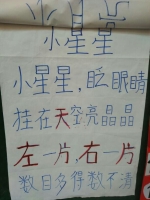 小星星
小星星，眨眼睛
挂在天空亮晶晶
左一片，右一片
数目多得数不清